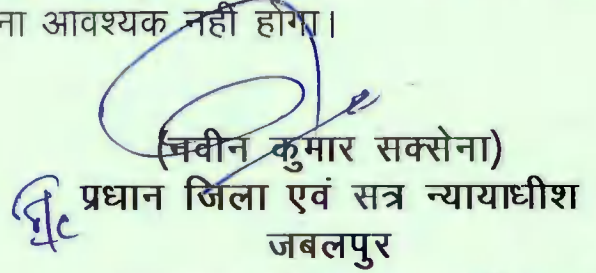 ना आवश्यक नही होगा।
(नवीन कुमार सक्सेना)
प्रधान जिला एवं सत्र न्यायाधीश
जबलपुर